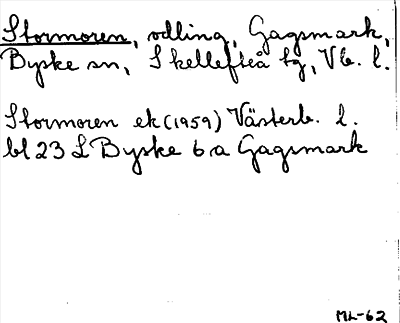 Stormoren, odling, Gagsmark,
Byske sn, Skellefteå tg, Vb. l.
Stormoren ek (1959) Västerb. l.
bl 23 L Byske 6 a Gagsmark
ML-62